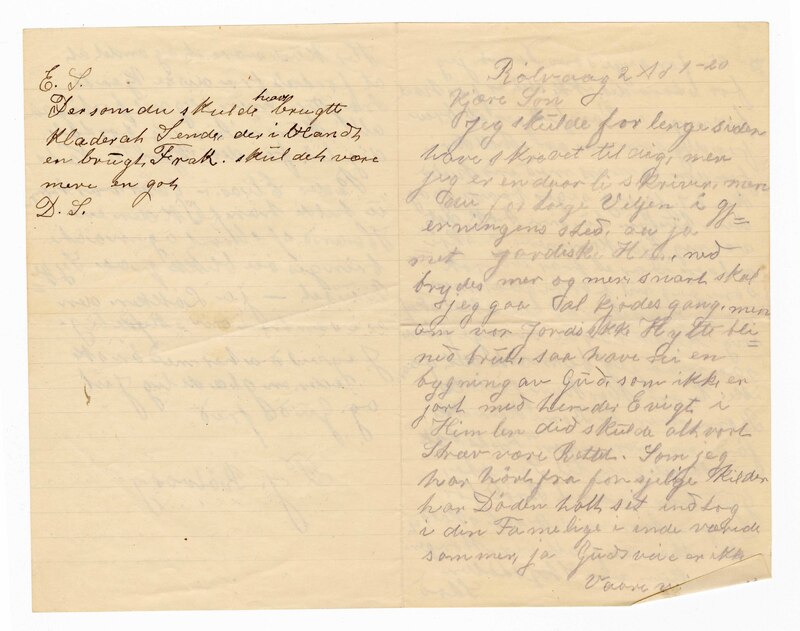 E. S.
Dersom du skulde have brugte
Klæder at Sende, der iblandt
en brugt, Frak. skul det være
mere en got
D. S.
Rölvaag 2
Kjære Sön
Jeg skulde for lenge siden
have skrevet til dig, men
jeg er en daar li skriver, men
Du for tage Viljen i gj=
erningens sted, au ja
met jordiske ned
brydes mer og mer, snart skal
jeg gaa Tal kjødes gang, men
om vor Jordiske Hytte bli=
ned brut, saa have vi en
bygning av Gud, som ikke er
jort med hender Evigt i
Himlen did skulde alt vort
Stræv være Rettet. Som jeg
har hört fra forsjellige Kilder
har Döden holt sit indtog
i din Famelige i inde værende
sommer, ja Guds veie er ikke
Vaare